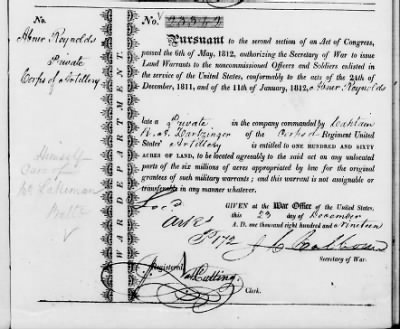 No.
Abner Reynolds
Private
Corps of Artillery
Himself
Care of
Balto
WAR DEPARTMENT.
No.
Pursuant to the second section of an Act of Congress,
passed the 6th of May, 1812, authorizing the Secretary of War to issue
Land Warrants to the noncommissioned Officers and Soldiers enlisted in
the service of the United States, conformably to the acts of the 24th of
December, 1811, and of the 11th of January, 1812, Abner Reynolds
late a Private in the company commanded by Captain
of the Corps of Regiment United
States' Artillery is entitled to ONE HUNDRED AND SIXTY
ACRES OF LAND, to be located agreeably to the said act on any unlocated
parts of the six millions of acres appropriated by law for the original
grantees of such military warrants; and this warrant is not assignable or
transferable in any manner whatever.
GIVEN at the War Office of the United States,
this 23 day of December
A. D. one thousand eight hundred and Nineteen
J. C. Calhoun
Secretary of War.
Registered
Cutting
Clerk.